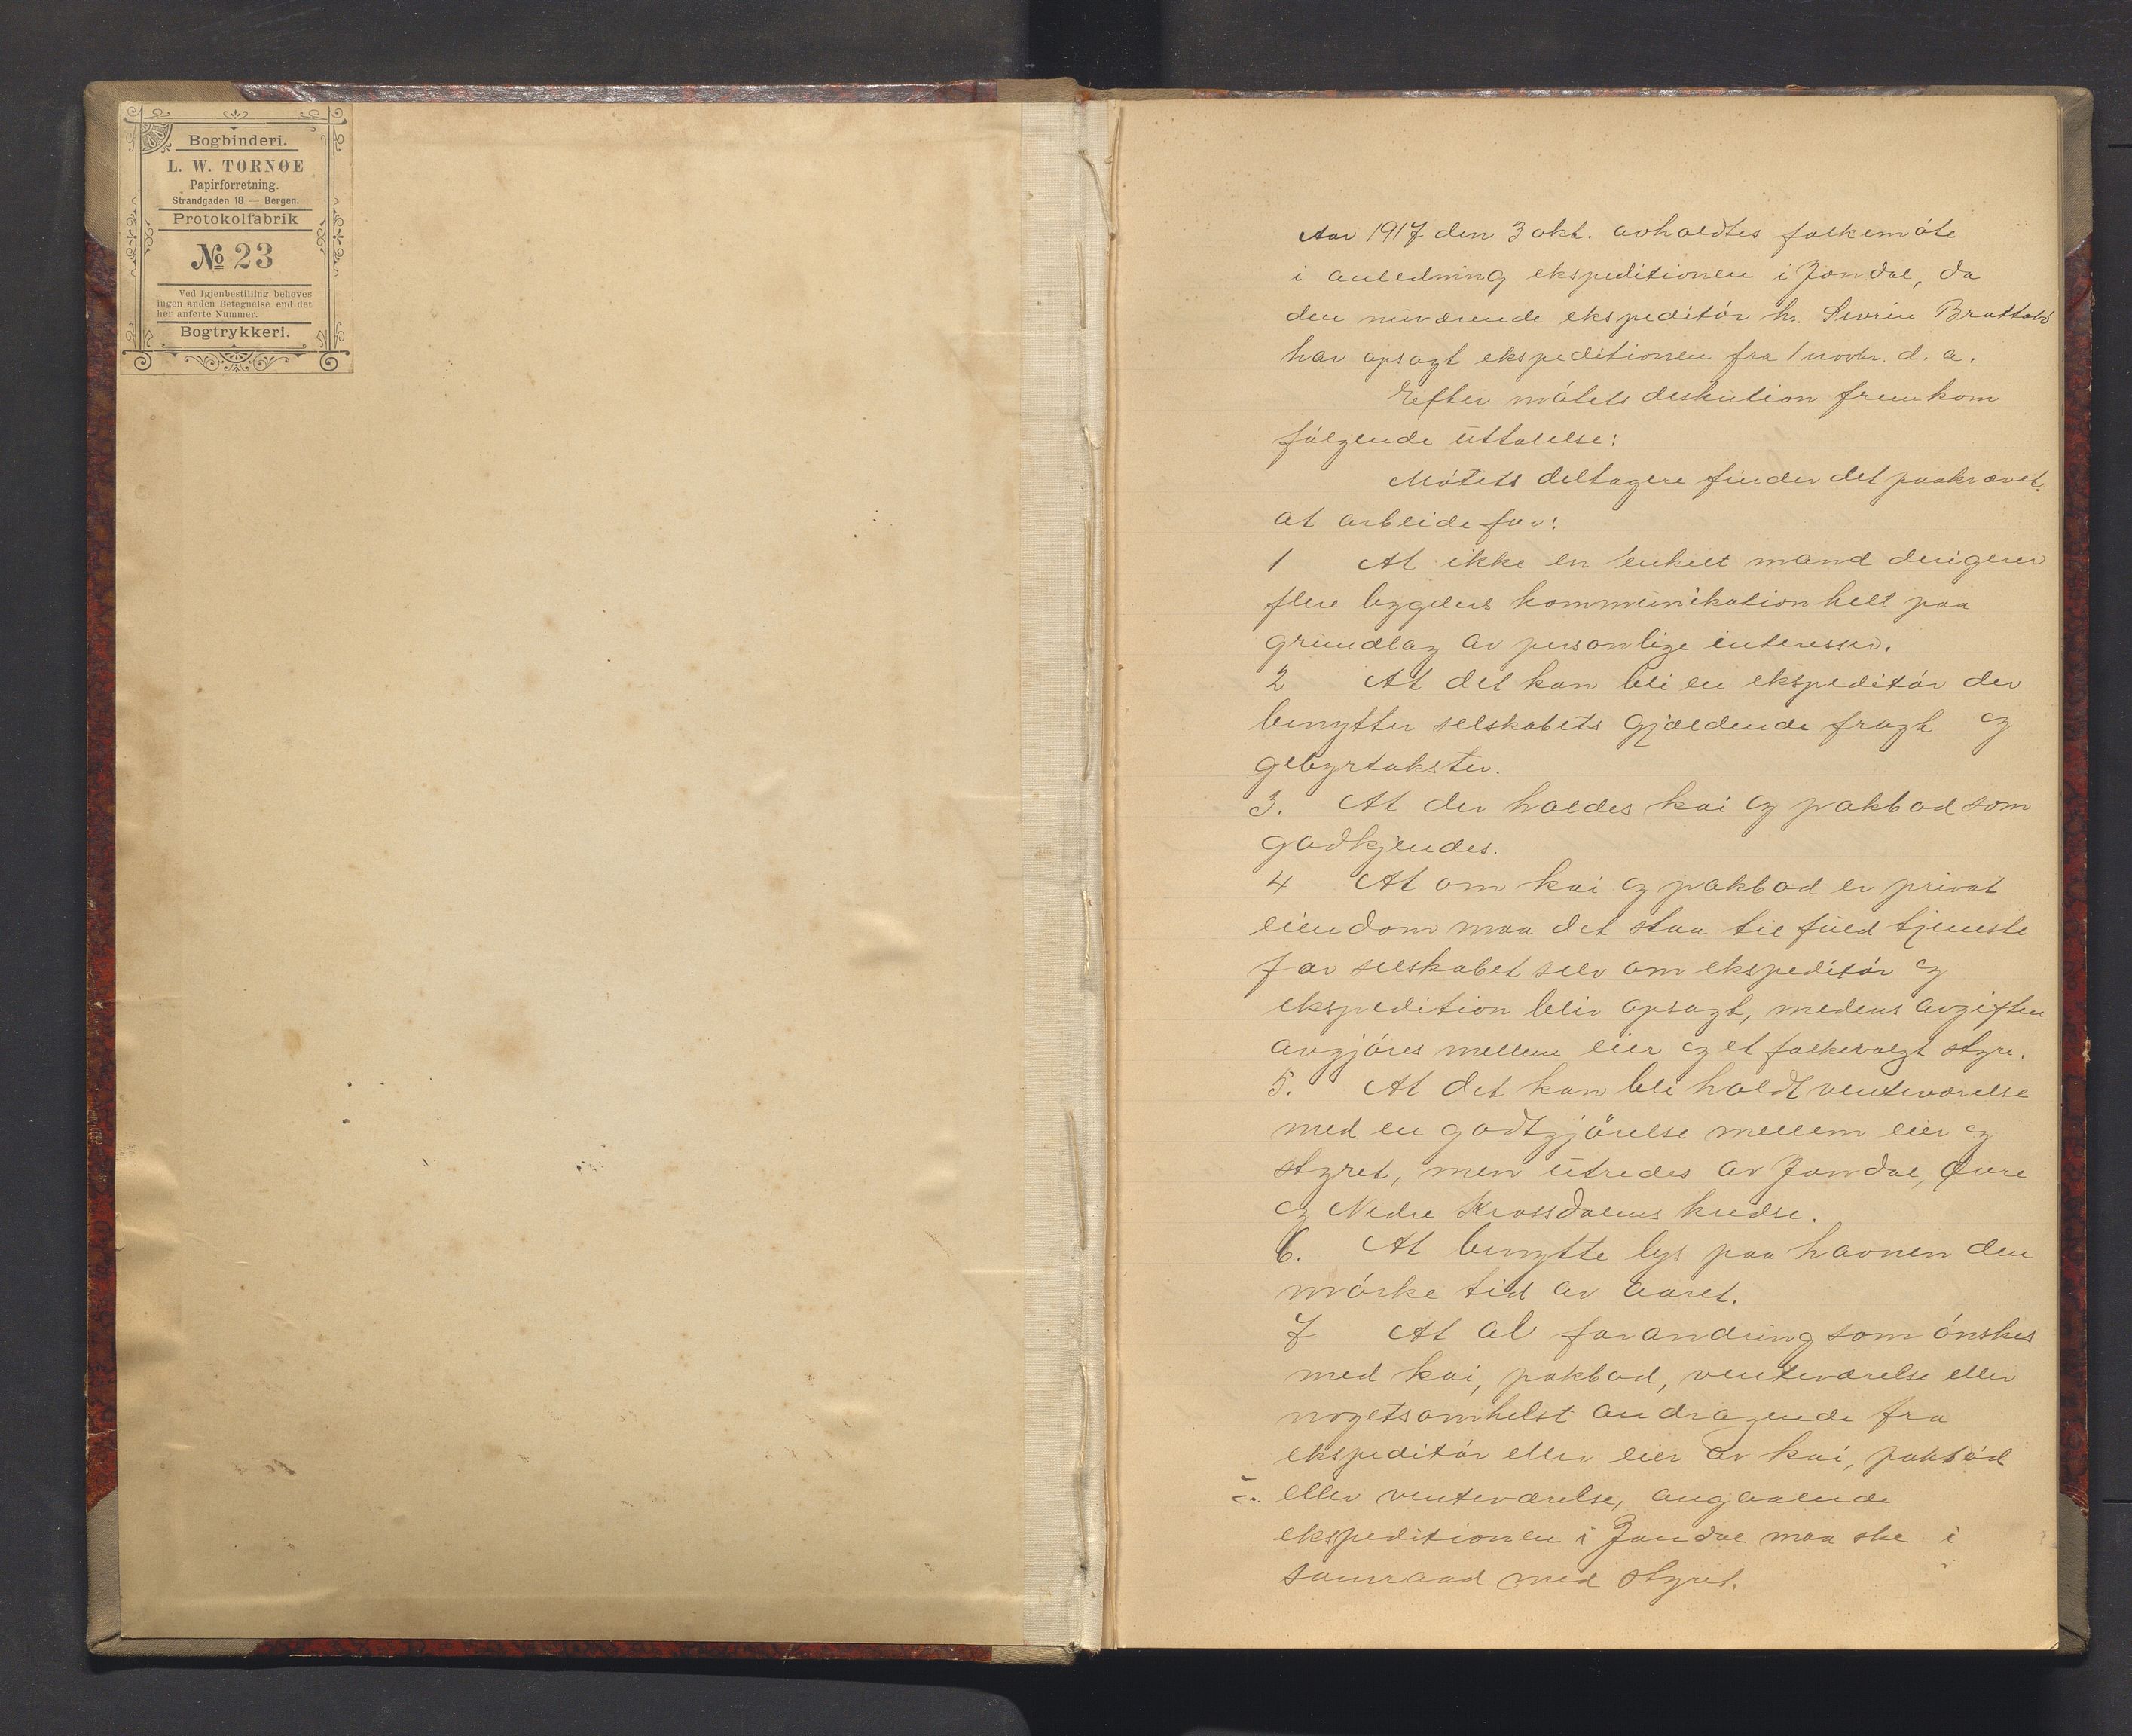 Bogbinderi.
L. W. TORNØE
Papirforretning.
Strandgaden 18 — Bergen.
Protokolfabrik
№ 23
Ved Igjenbestilling behøves
ingen anden Betegnelse end det
her anførte Nummer.
Bogtrykkeri.
Aar 1917 den 3 okt. avholdtes folkemóte
i anledning ekspeditionen i Jondal, da
den nuværende ekspeditór hr. Sevrin
har opsagt ekspeditionen fra 1 novbr. d. a.
Efter mótets deskution fremkom
fólgende uttalelse:
Mótets deltagere finder det paakrævet.
at arbeide for:
1 At ikke en enkelt mand derigerer
flere bygders kommunikation helt paa
grundlag av personlige interesser.
2 At det kan bli en ekspeditór der
benytter selskabets gjældende fragt og
gebyrtakster.
3. At der holdes kai og pakbod som
godkjendes.
4 At om kai og pakbod er privat
eiendom maa det staa til fuld tjeneste
for selskabet selv om ekspeditór og
ekspedition blir opsagt, medens avgiften
avgjóres mellem eier og et folkevalgt styre.
5. At det kan bli holdt venteværelse
med en godtgjörelse mellem eier og
styret, men utredes av Jondal, Øvre
og Nedre Krossdalens kredse.
6. At benytte lys paa havnen den
mórke tid av aaret.
7 At al forandring som ónskes
med kai, pakbod, venteværelse eller
nogetsomhelst andragende fra
ekspeditór eller eier av kai, pakbod
eller venteværelse, angaaende
ekspeditionen i Jondal maa ske i
samraad med styret.